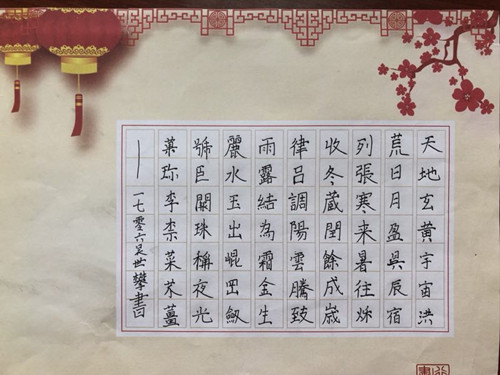 天地玄黄宇宙洪
荒日月盈昃辰宿
列張寒来暑往秋
收冬蔵閏餘成歳
律吕調陽雲騰致
雨露結為霜金生
麗水玉出崐岡劔
號巨闕珠稱夜光
菓珍李柰菜芥薑
一七零六吴世攀書